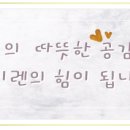 의 따뜻한 공감
이렌의 힘이 됩니